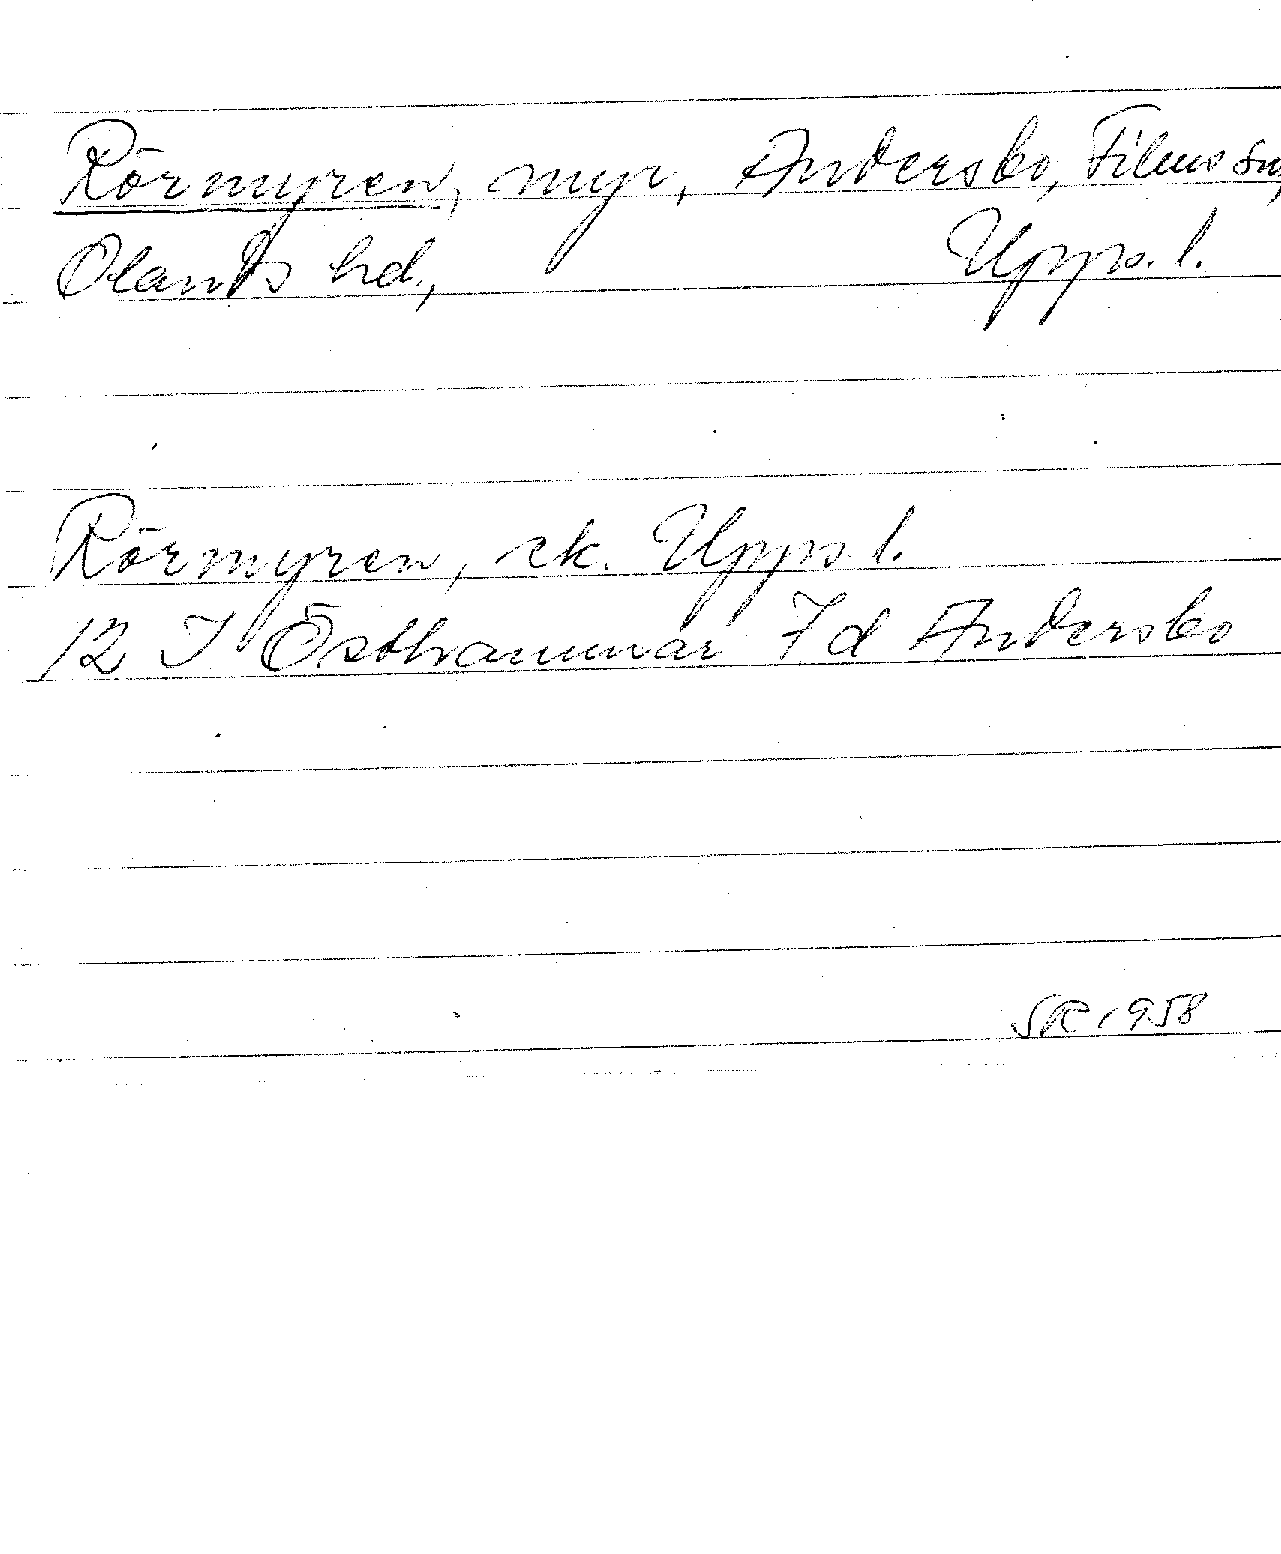 Rörmyren, myr, Andersbo, Films sn,
Olands hd., Upps. l.
Rörmyren, ek. Upps l.
12 I Östhammar 7d Andersbo
SR 1958